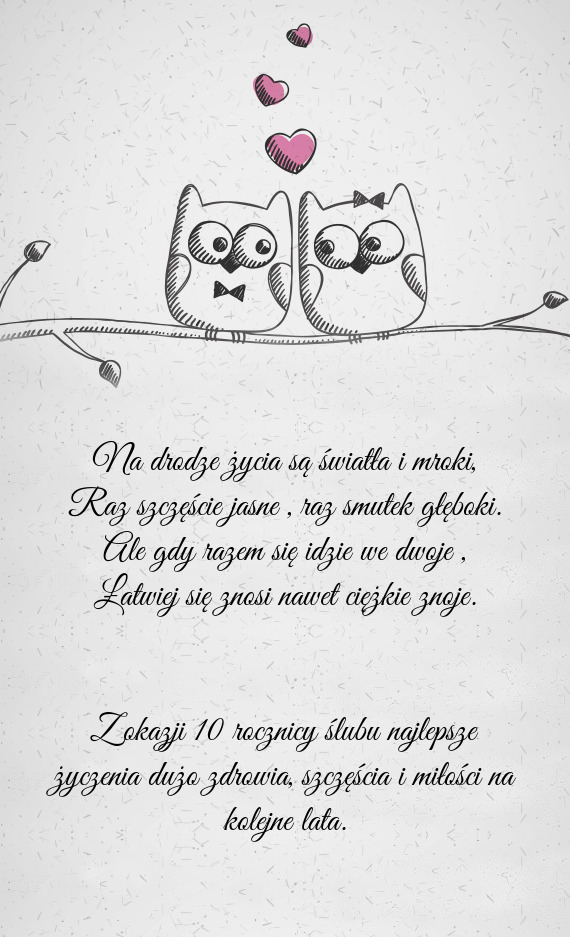 Na drodze życia są światła i mroki,
Raz szczęście jasne , raz smutek głęboki.
Ale gdy razem się idzie we dwoje ,
Łatwiej się znosi nawet ciężkie znoje.
Zokazji 10 rocznicy ślubu najlepsze
życzenia dużo zdrowia, szczęścia i miłości na
kolejne lata.